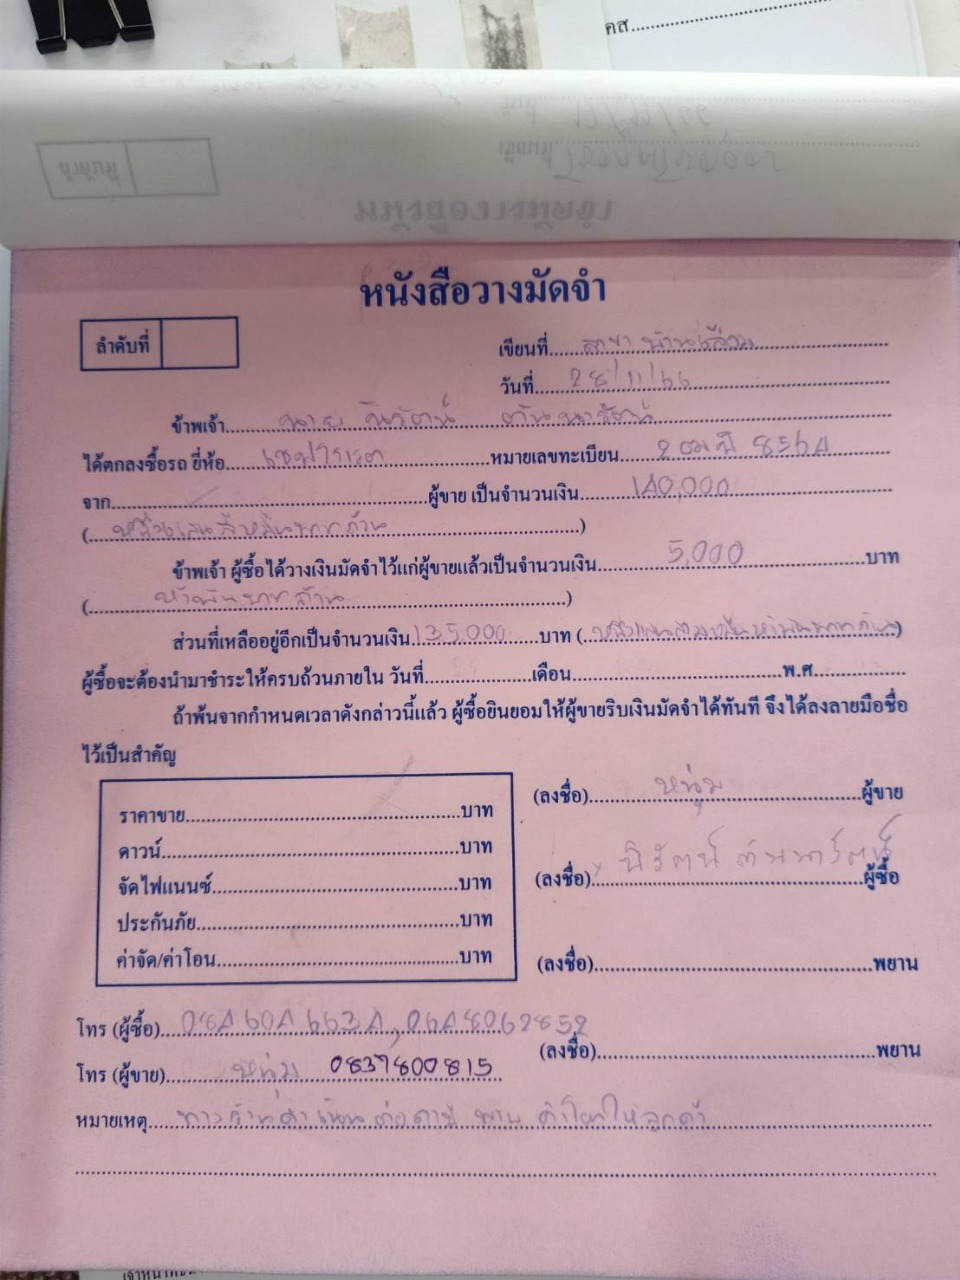 คส
หนังสือวางมัดจำ
ลำดับที่
เขียนที่ สาขา บ้านเลื่อม
วันที่ 28/11/66
ข้าพเจ้า นาย
ได้ตกลงซื้อรถ ยี่ห้อ เชฟโรเรต หมายเลขทะเบียน 8564
จาก ผู้ขาย เป็นจำนวนเงิน 140,000
(หนึ่งแสนสี่หมื่นบาทถ้วน)
ข้าพเจ้า ผู้ซื้อได้วางเงินมัดจำไว้แก่ผู้ขายแล้วเป็นจำนวนเงิน 5,000 บาท
(ห้าพันบาทถ้วน)
ส่วนที่เหลืออยู่อีกเป็นจำนวนเงิน 135,000 บาท (หนึ่งแสนสามหมื่นห้าพันบาทถ้วน)
ผู้ซื้อจะต้องนำมาชำระให้ครบถ้วนภายใน วันที่ เดือน พ.ศ.
ถ้าพ้นจากกำหนดเวลาดังกล่าวนี้แล้ว ผู้ซื้อยินยอมให้ผู้ขายริบเงินมัดจำได้ทันที จึงได้ลงลายมือชื่อ
ไว้เป็นสำคัญ
ราคาขาย บาท
ดาวน์ บาท
จัดไฟแนนซ์ บาท
ประกันภัย บาท
ค่าจัด/ค่าโอน บาท
(ลงชื่อ) หนุ่ม ผู้ขาย
(ลงชื่อ) ผู้ซื้อ
(ลงชื่อ) พยาน
(ลงชื่อ) พยาน
โทร (ผู้ซื้อ) 0846046634, 0648062852
โทร (ผู้ขาย) หนุ่ม 0837800815
หมายเหตุ ทางร้านดำเนินต่อภาษี พรบ ค่าโอนให้ลูกค้า